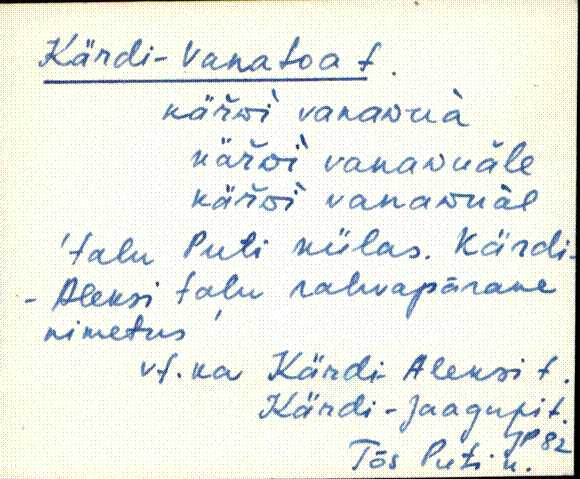 Kärdi-Vanatoa t.
kär̆wì vanawuà
kär̆wì vanawuàle
kär̆wì vanawuàl
'talu Puti külas. Kärdi-
-Aleksi talu rahvapärane
nimetus'
vt. ka Kärdi-Aleksi t.
Kärdi-Jaagupi t.
JP 82
Tõs Puti k.